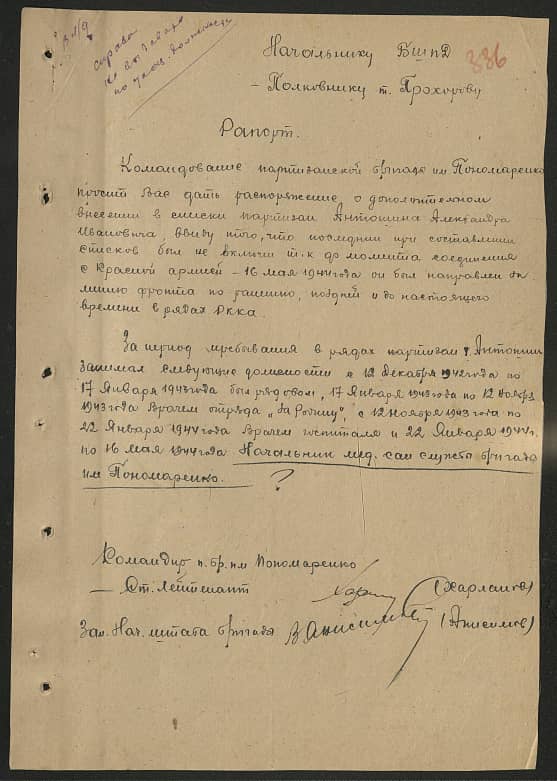 справа
по
Начальнику БШПД 336
- Полковнику т. Прохорову
Рапорт.
Командование партизанской бригады им Пономаренко
просит Вас дать распоряжение о дополнительном
внесении в списки партизан Антошина Александра
Ивановича, ввиду того, что последний при составлении
списков был не включен т.к до момента соединения
с Красной армией - 16 мая 1944 года он был направлен за
линию фронта по ранению, поздней и до настоящего
времени в рядах РККА.
За период пребывания в рядах партизан т. Антошин
занимал следующие должности с 12 декабря 1942 года по
17 Января 1943 года был рядовом, 17 Января 1943 года по 12 ноября
1943 года Врачем отряда „За Родину", с 12 ноября 1943 года по
22 Января 1944 года Врачем госпиталя и 22 Января 1944 г.
по 16 мая 1944 года Начальник мед. сан службы бригады
им Пономаренко. ?
Командир п. бр. им Пономаренко
- Ст. Лейтенант (Харланов)
Зам. Нач. штаба бригады В Анисимов (Анисимов)